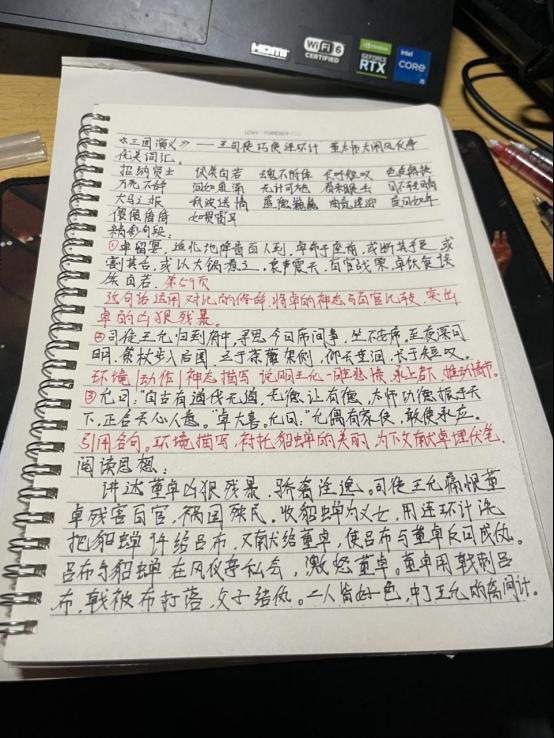 HDMI
WiFi 6
CERTIFIED
NVIDIA
GEFORCE
RTX
intel
CORE
i5
《三国演义》——王司徒巧使连环计 董太师大闹凤仪亭
优美词汇。
招纳贤士 伏炙自若 魂不附体 长吁短叹 也在
万死不辞 泪如泉涌 无计可施 眉来眼去 目不转睛
大马之报 秋波送情 曲意逢迎 度日如年
如雷贯耳
精彩句段:
①卓留宴,适北地降者百人到,卓命于座前,或断其手足,或
割其舌,或以大锅煮之。哀声震天,百官战栗,卓饮食谈
笑自若。第59页
该句话运用对比的修辞,将卓的神态与百官比较,突出
卓的凶狠残暴。
②司徒王允归到府中,寻思今日席间事,坐不安席,至夜深月
明,策杖步入后园,立于荼蘼架侧,仰天垂泪,长吁短叹。
环境/动作/神态描写 说明王允一脏悲愤,承上启下,推动情节。
③允曰:“自古有道伐无道,无德让有德,太师功德振于天
下,正合天心人意。”卓大喜。允曰:“允偶有家伎,敢使承应。
引用名句。环境描写,衬托貂蝉的美丽,为下文献卓埋伏笔。
阅读感想:
讲述董卓凶狠残暴,骄奢淫逸。司徒王允痛恨董
卓残害百官,祸国殃民。收貂蝉为义女,用连环计谋
把貂蝉许给吕布,又献给董卓,使吕布与董卓反目成仇。
吕布与貂蝉在凤仪亭私会,激怒董卓。董卓用戟刺吕
布,戟被布打落,父子结仇。二人皆好色,中了王允的离间计。